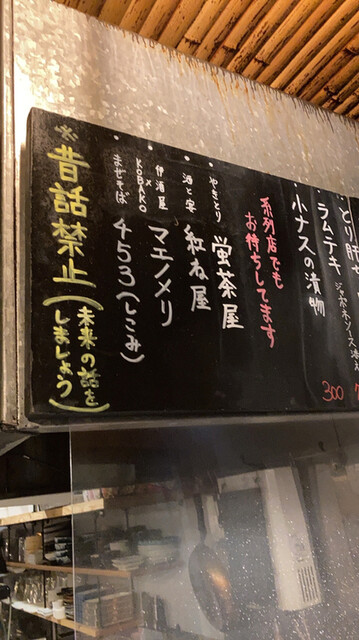 とり肝
ジャポネソース
ラムテキ
300
小ナスの漬物
系列店でも
お待ちしてます
やきとり 蛍茶屋
酒と宴 紅ね屋
伊酒屋
×
KOBAKO マエノメリ
まぜそば 453(しこみ)
※昔話禁止(未来の話を
しましょう)